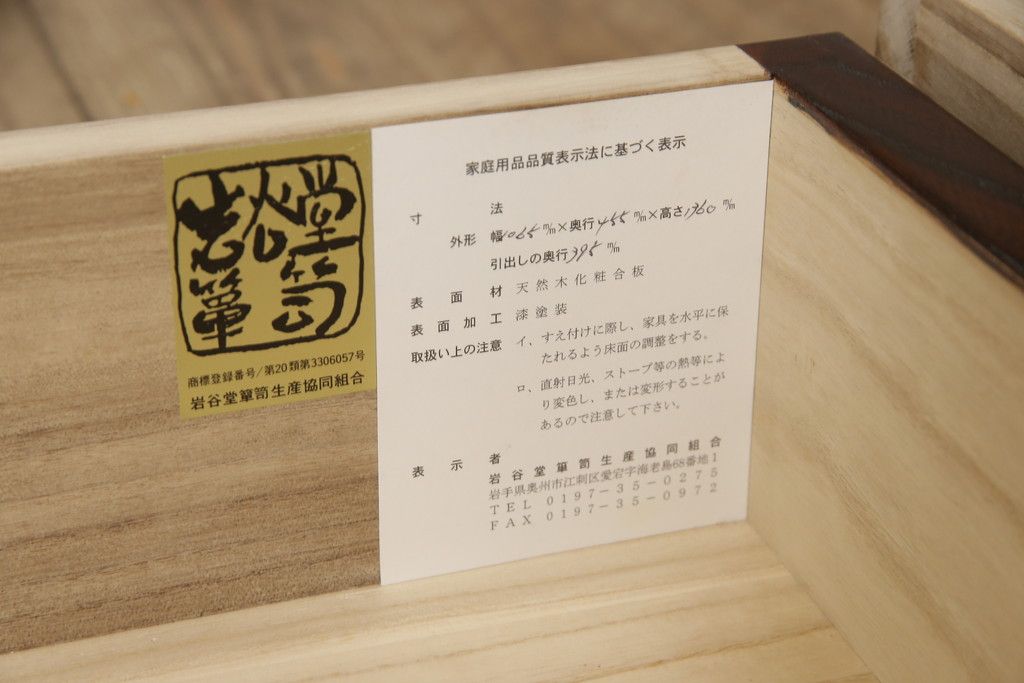 岩谷堂箪笥
商標登録番号/第20類第3306057号
岩谷堂箪笥生産協同組合
家庭用品品質表示法に基づく表示
寸法
外形 幅1065㎜×奥行455㎜×高さ1360㎜
引出しの奥行395㎜
表面材 天然木化粧合板
表面加工 漆塗装
取扱い上の注意 イ、すえ付けに際し、家具を水平に保
たれるよう床面の調整をする。
ロ、直射日光、ストーブ等の熱等によ
り変色し、または変形することが
あるので注意して下さい。
表示者
岩谷堂箪笥生産協同組合
岩手県奥州市江刺区愛宕字海老島68番地1
TEL 0197-35-0275
FAX 0197-35-0972